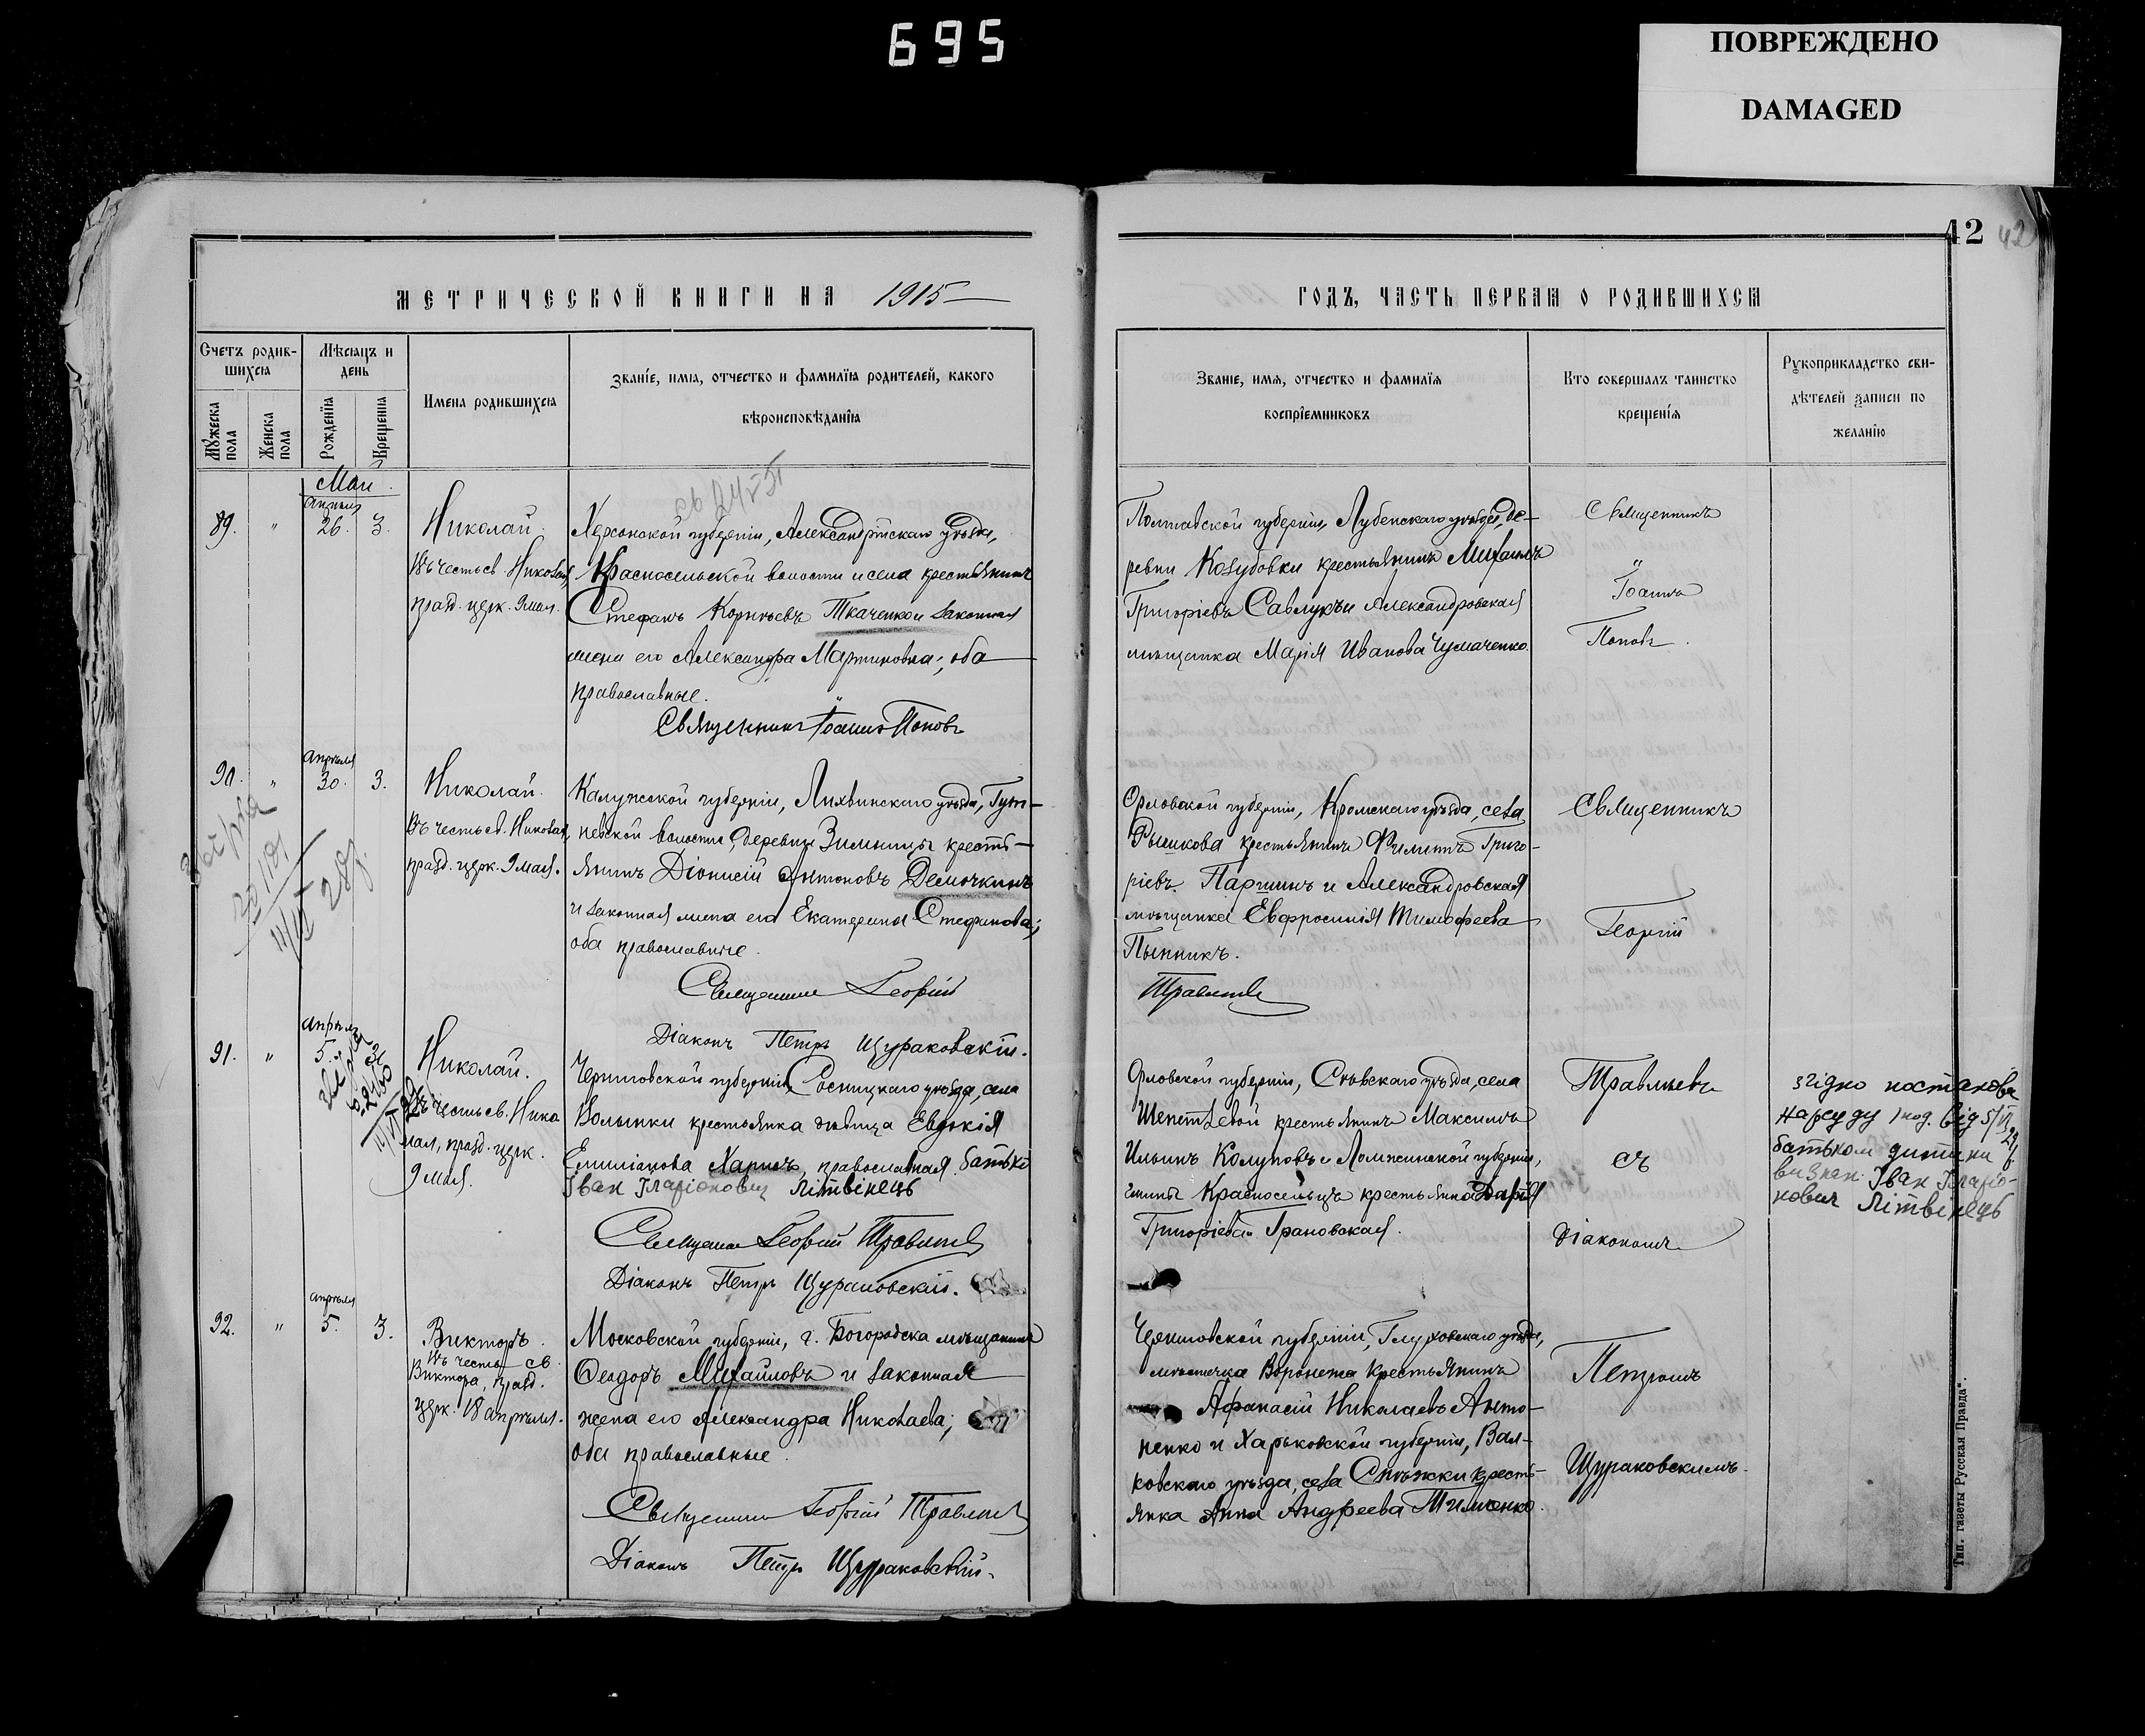 695
ПОВРЕЖДЕНО
DAMAGED
12 42
МЕТРИЧЕСКОЙ КНИГИ НА 1915
Счетъ родив-
шихся
Мѣсяцъ и
день
Имена родившихся
Званіе, имя, отчество и фамилія родителей, какого
вѣроисповѣданія
Мужеска
пола
Женска
пола
Рожденія
Крещенія
Май
89. " апрѣля 26. 3. Николай.
Въ честь св. Николая,
празд. церк. 9 мая.
Херсонской губерніи, Александрійскаго уѣзда,
Красносельской волости и села крестьянинъ
Стефанъ Корнѣевъ Ткаченко и законная
жена его Александра Мартиновна; оба
православные.
Священникъ Іоаннъ Поповъ
90. " апрѣля 30. 3. Николай.
Въ честь св. Николая,
празд. церк. 9 мая.
Калужской губерніи, Лихвинскаго уѣзда,
невской волости, деревни Зимницы кресть-
янинъ Діонисій Антоновъ Демочкинъ
и законная жена его Екатерина Стефанова;
оба православные.
Священникъ Георгій
Діаконъ Петръ Щураковскій.
91. " апрѣля 5. Николай.
Въ честь св. Нико
лая, празд. церк.
9 мая.
Черниговской губерніи, Сосницкаго уѣзда, села
Волынки крестьянка дѣвица Евдокія
Емиліанова Харичъ, православная. батько
Іван Іларіонович Літвінець
Священникъ Георгій Травлѣевъ
Діаконъ Петръ Щураковскій.
92. " апрѣля 5. 3. Викторъ.
Въ честь св.
Виктора, празд.
церк. 18 апрѣля.
Московской губерніи, г. Богородска мѣщанинъ
Ѳеодоръ Михайловъ и законная
жена его Александра Николаева;
оба православные.
Священникъ Георгій Травлѣевъ
Діаконъ Петръ Щураковскій.
ГОДЪ, ЧАСТЬ ПЕРВАЯ О РОДИВШИХСЯ
Званіе, имя, отчество и фамилія
воспріемниковъ
Кто совершалъ таинство
крещенія
Рукоприкладство сви-
дѣтелей записи по
желанію
Полтавской губерніи, Лубенскаго уѣзда, де-
ревни Козубовки крестьянинъ Михаилъ
Григоріевъ Савлукъ и Александровская
мѣщанка Марія Иванова Чумаченко.
Священникъ
Іоаннъ
Поповъ.
Орловской губерніи, Кромскаго уѣзда, села
Рышкова крестьянинъ Филиппъ Григо-
ріевъ Паршинъ и Александровская
мѣщанка Евфросинія Тимофеева
Пынникъ.
Травлѣевъ
Священникъ
Георгій
Орловской губерніи, Сѣвскаго уѣзда, села
крестьянинъ Максимъ
Ильинъ Колуповъ и Ломжинской губерніи,
гмины Красносельцъ крестьянка Дарія
Григоріева Грановская.
Травлѣевъ
съ
діакономъ
згідно постанови
нарсуду від
батьком дитини
визнан Іван Іларіо-
нович Літвінець
Черниговской губерніи, Глуховскаго уѣзда,
мѣстечка Воронежа крестьянинъ
Афанасій Николаевъ Анто-
ненко и Харьковской губерніи, Вал-
ковскаго уѣзда, села Снѣжки кресть-
янка Анна Андреева Тименко.
Петромъ
Щураковскимъ.
Тип. газеты „Русская Правда".